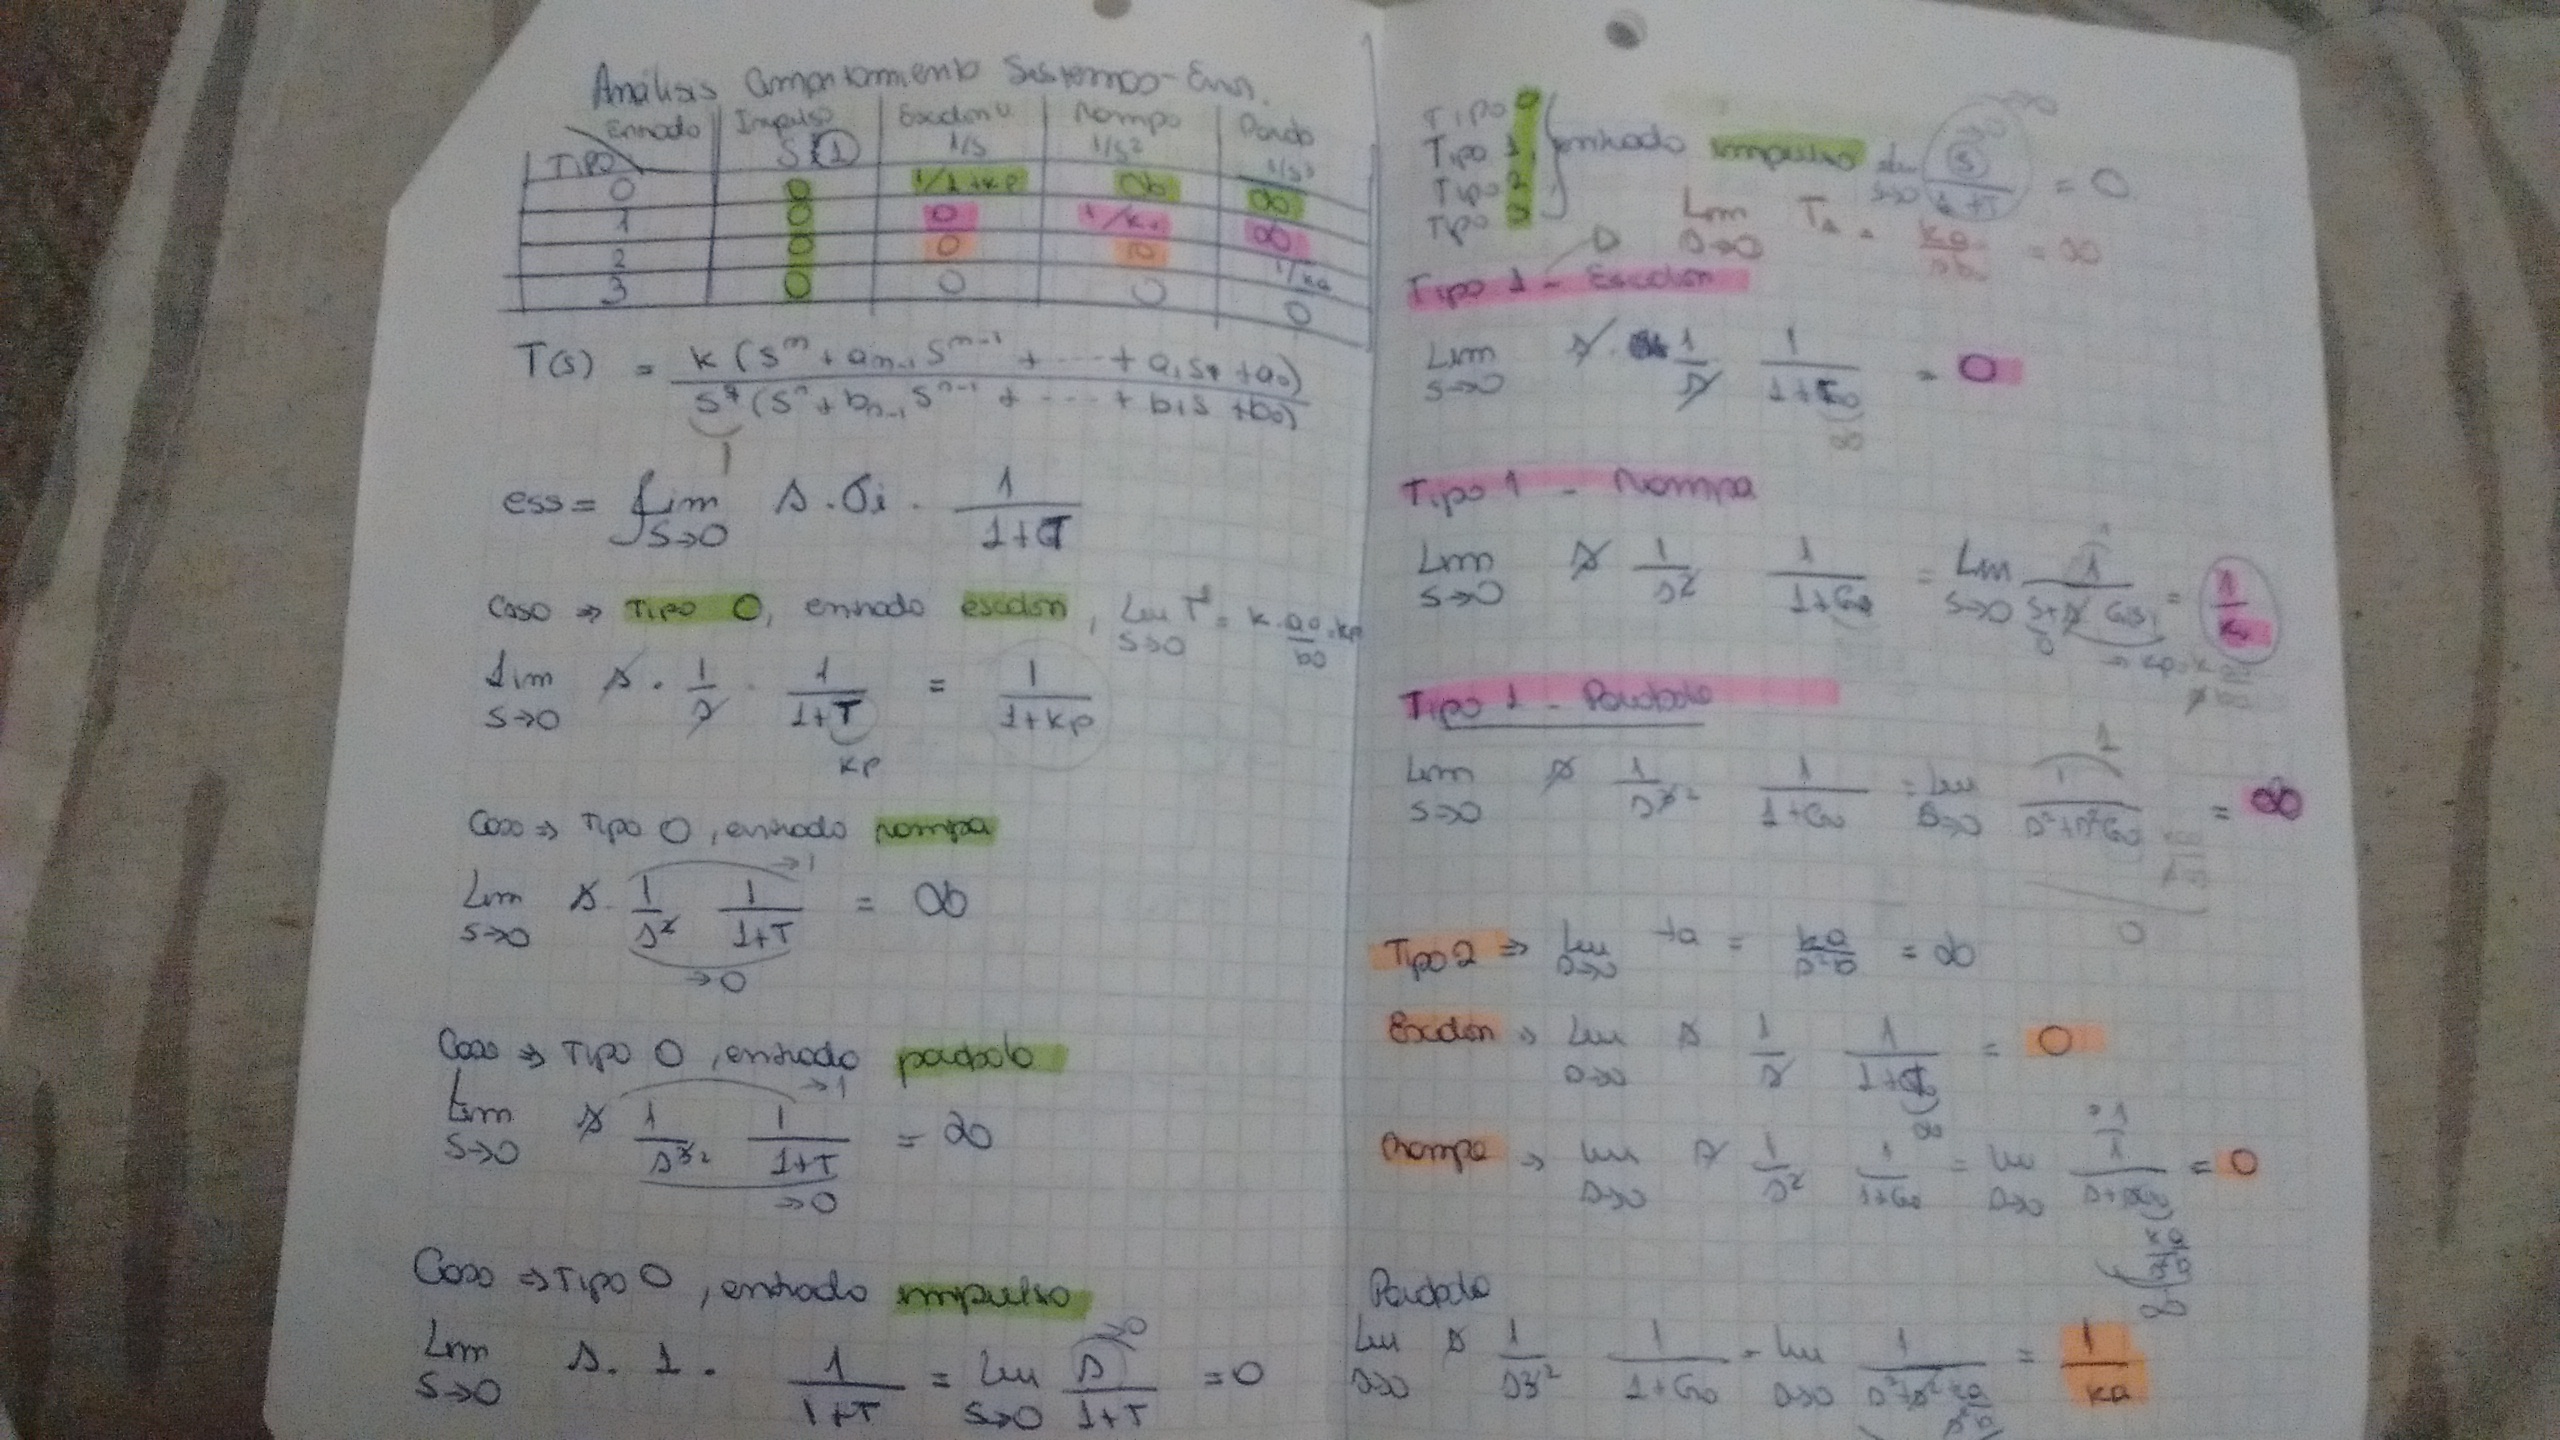 Análisis Comportamiento Sistemas - Error.
Entrada Impulso Escalón u. Rampa Parab
TIPO 1 1/s 1/s² 1/s³
0 0 1/1+kp ∞ ∞
1 0 0 1/kv ∞
2 0 0 0 1/ka
3 0 0 0 0
T(s) = k (s^m + a_{m-1} s^{m-1} + ... + a_1 s + a_0) / s^q (s^n + b_{n-1} s^{n-1} + ... + b_1 s + b_0)
ess = Lim s→0 s . σi . 1/1+T
Caso ⇒ TIPO 0, entrada escalón, Lim s→0 T = k . a0/b0 = kp
Lim s→0 s . 1/s . 1/1+T = 1/1+kp
kp
Caso ⇒ TIPO 0, entrada rampa
Lim s→0 s . 1/s² 1/1+T = ∞
→1
→0
Caso ⇒ TIPO 0, entrada parábola
Lim s→0 s 1/s³ 1/1+T = ∞
→1
→0
Caso ⇒ TIPO 0, entrada impulso
Lim s→0 s . 1 . 1/1+T = Lim s→0 s/1+T = 0
→0
Tipo 0
Tipo 1
Tipo 2
Tipo 3
entrada impulso Lim s→0 s/1+T = 0
Tipo 1 - Escalón
Lim s→0
= ∞
Lim s→0 s . 1/s 1/1+Go = 0
∞
Tipo 1 - Rampa
Lim s→0 s 1/s² 1/1+Go = Lim s→0 1/s+s Go = 1/kv
Tipo 1 - Parábola
Lim s→0 s 1/s³ 1/1+Go = Lim s→0 1/s²+s²Go = ∞
0
Tipo 2 ⇒ Lim s→0 = ka/s²b = ∞
Escalón ⇒ Lim s→0 s 1/s 1/1+G = 0
∞
Rampa ⇒ Lim s→0 s 1/s² 1/1+Go = Lim s→0 = 0
Parábola
Lim s→0 s 1/s³ 1/1+Go = Lim s→0 = 1/ka